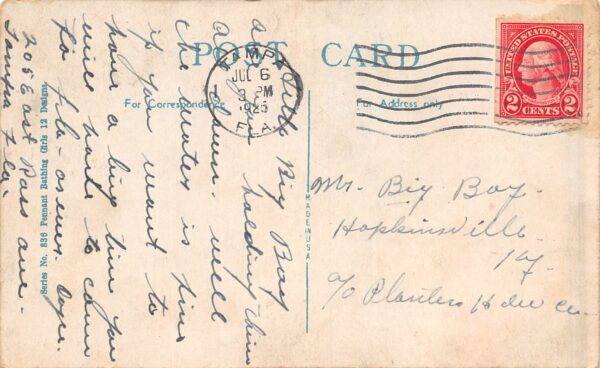 POST CARD
For Correspondence
For Address only
TAMPA
JUL 6
PM
1925
FLA
UNITED STATES POSTAGE
2 CENTS 2
MADE IN USA
Series No. 836 Pennant Bathing Girls 12 Designs
Hello Big Boy
are you holding things
down. well
the water is fine
if you want to
have a big time you
want to come
to Fla-
205 East Ross ave.
Tampa Fla.
Mr. Big Boy.
Hopkinsville
Ky.
c/o Planters Hdw Co.